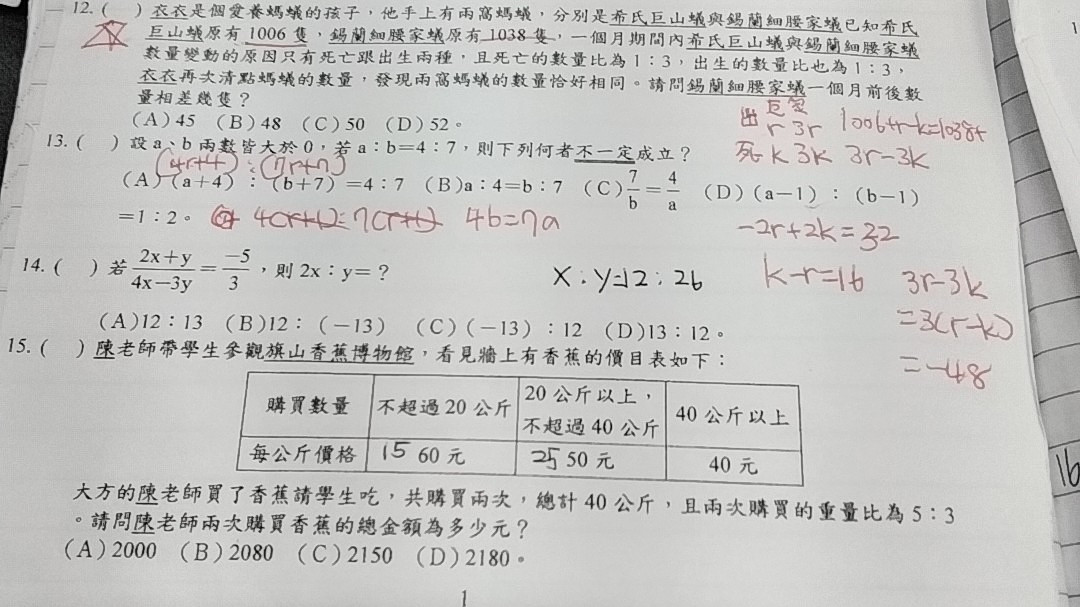 12. ( ) 衣衣是個愛養螞蟻的孩子，他手上有兩窩螞蟻，分別是希氏巨山蟻與錫蘭細腰家蟻已知希氏
巨山蟻原有 1006 隻，錫蘭細腰家蟻原有 1038 隻，一個月期間內希氏巨山蟻與錫蘭細腰家蟻
數量變動的原因只有死亡跟出生兩種，且死亡的數量比為 1：3，出生的數量比也為 1：3，
衣衣再次清點螞蟻的數量，發現兩窩螞蟻的數量恰好相同。請問錫蘭細腰家蟻一個月前後數
量相差幾隻？
(A) 45 (B) 48 (C) 50 (D) 52。
出 r 3r 1006+r-k=1038+
死 k 3k 3r-3k
-2r+2k=32
k-r=16 3r-3k
=3(r-k)
=-48
13. ( ) 設 a、b 兩數皆大於 0，若 a：b=4：7，則下列何者不一定成立？
(4r+4)：(7r+7)
(A) (a+4)：(b+7) =4：7 (B)a：4=b：7 (C) 7/b = 4/a (D) (a-1)：(b-1)
=1：2。
4(r+1)=7(r+1) 4b=7a
14. ( ) 若 2x+y/4x-3y = -5/3，則 2x：y=？
X：Y=12：26
(A)12：13 (B)12：(-13) (C)(-13)：12 (D)13：12。
15. ( ) 陳老師帶學生參觀旗山香蕉博物館，看見牆上有香蕉的價目表如下：
購買數量 不超過 20 公斤 20 公斤以上， 40 公斤以上
不超過 40 公斤
每公斤價格 15 60 元 25 50 元 40 元
大方的陳老師買了香蕉請學生吃，共購買兩次，總計 40 公斤，且兩次購買的重量比為 5：3
。請問陳老師兩次購買香蕉的總金額為多少元？
(A) 2000 (B) 2080 (C) 2150 (D) 2180。
1
16